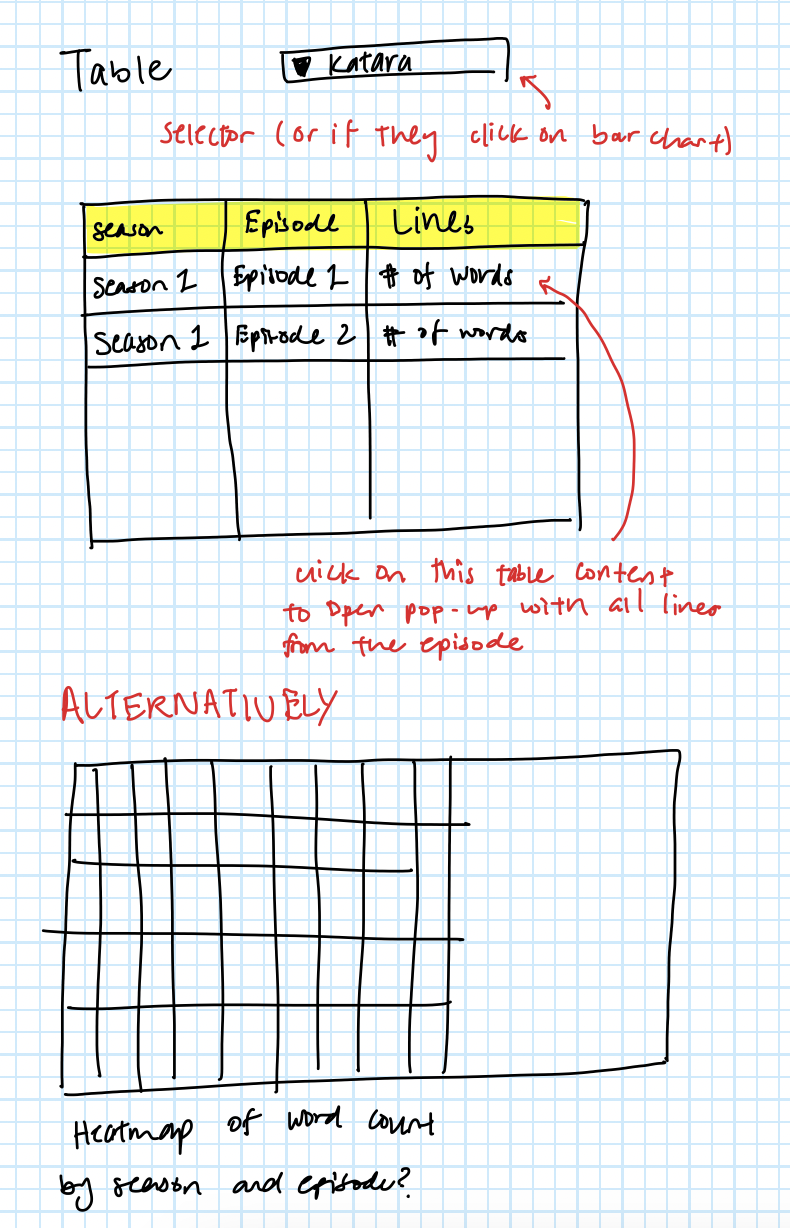 Table
Katara
Selector (or if they click on bar chart)
season Episode Lines
Season 1 Episode 1 # of words
Season 1 Episode 2 # of words
click on this table content
to open pop-up with all lines
from the episode
ALTERNATIVELY
Heatmap of word count
by season and episode?